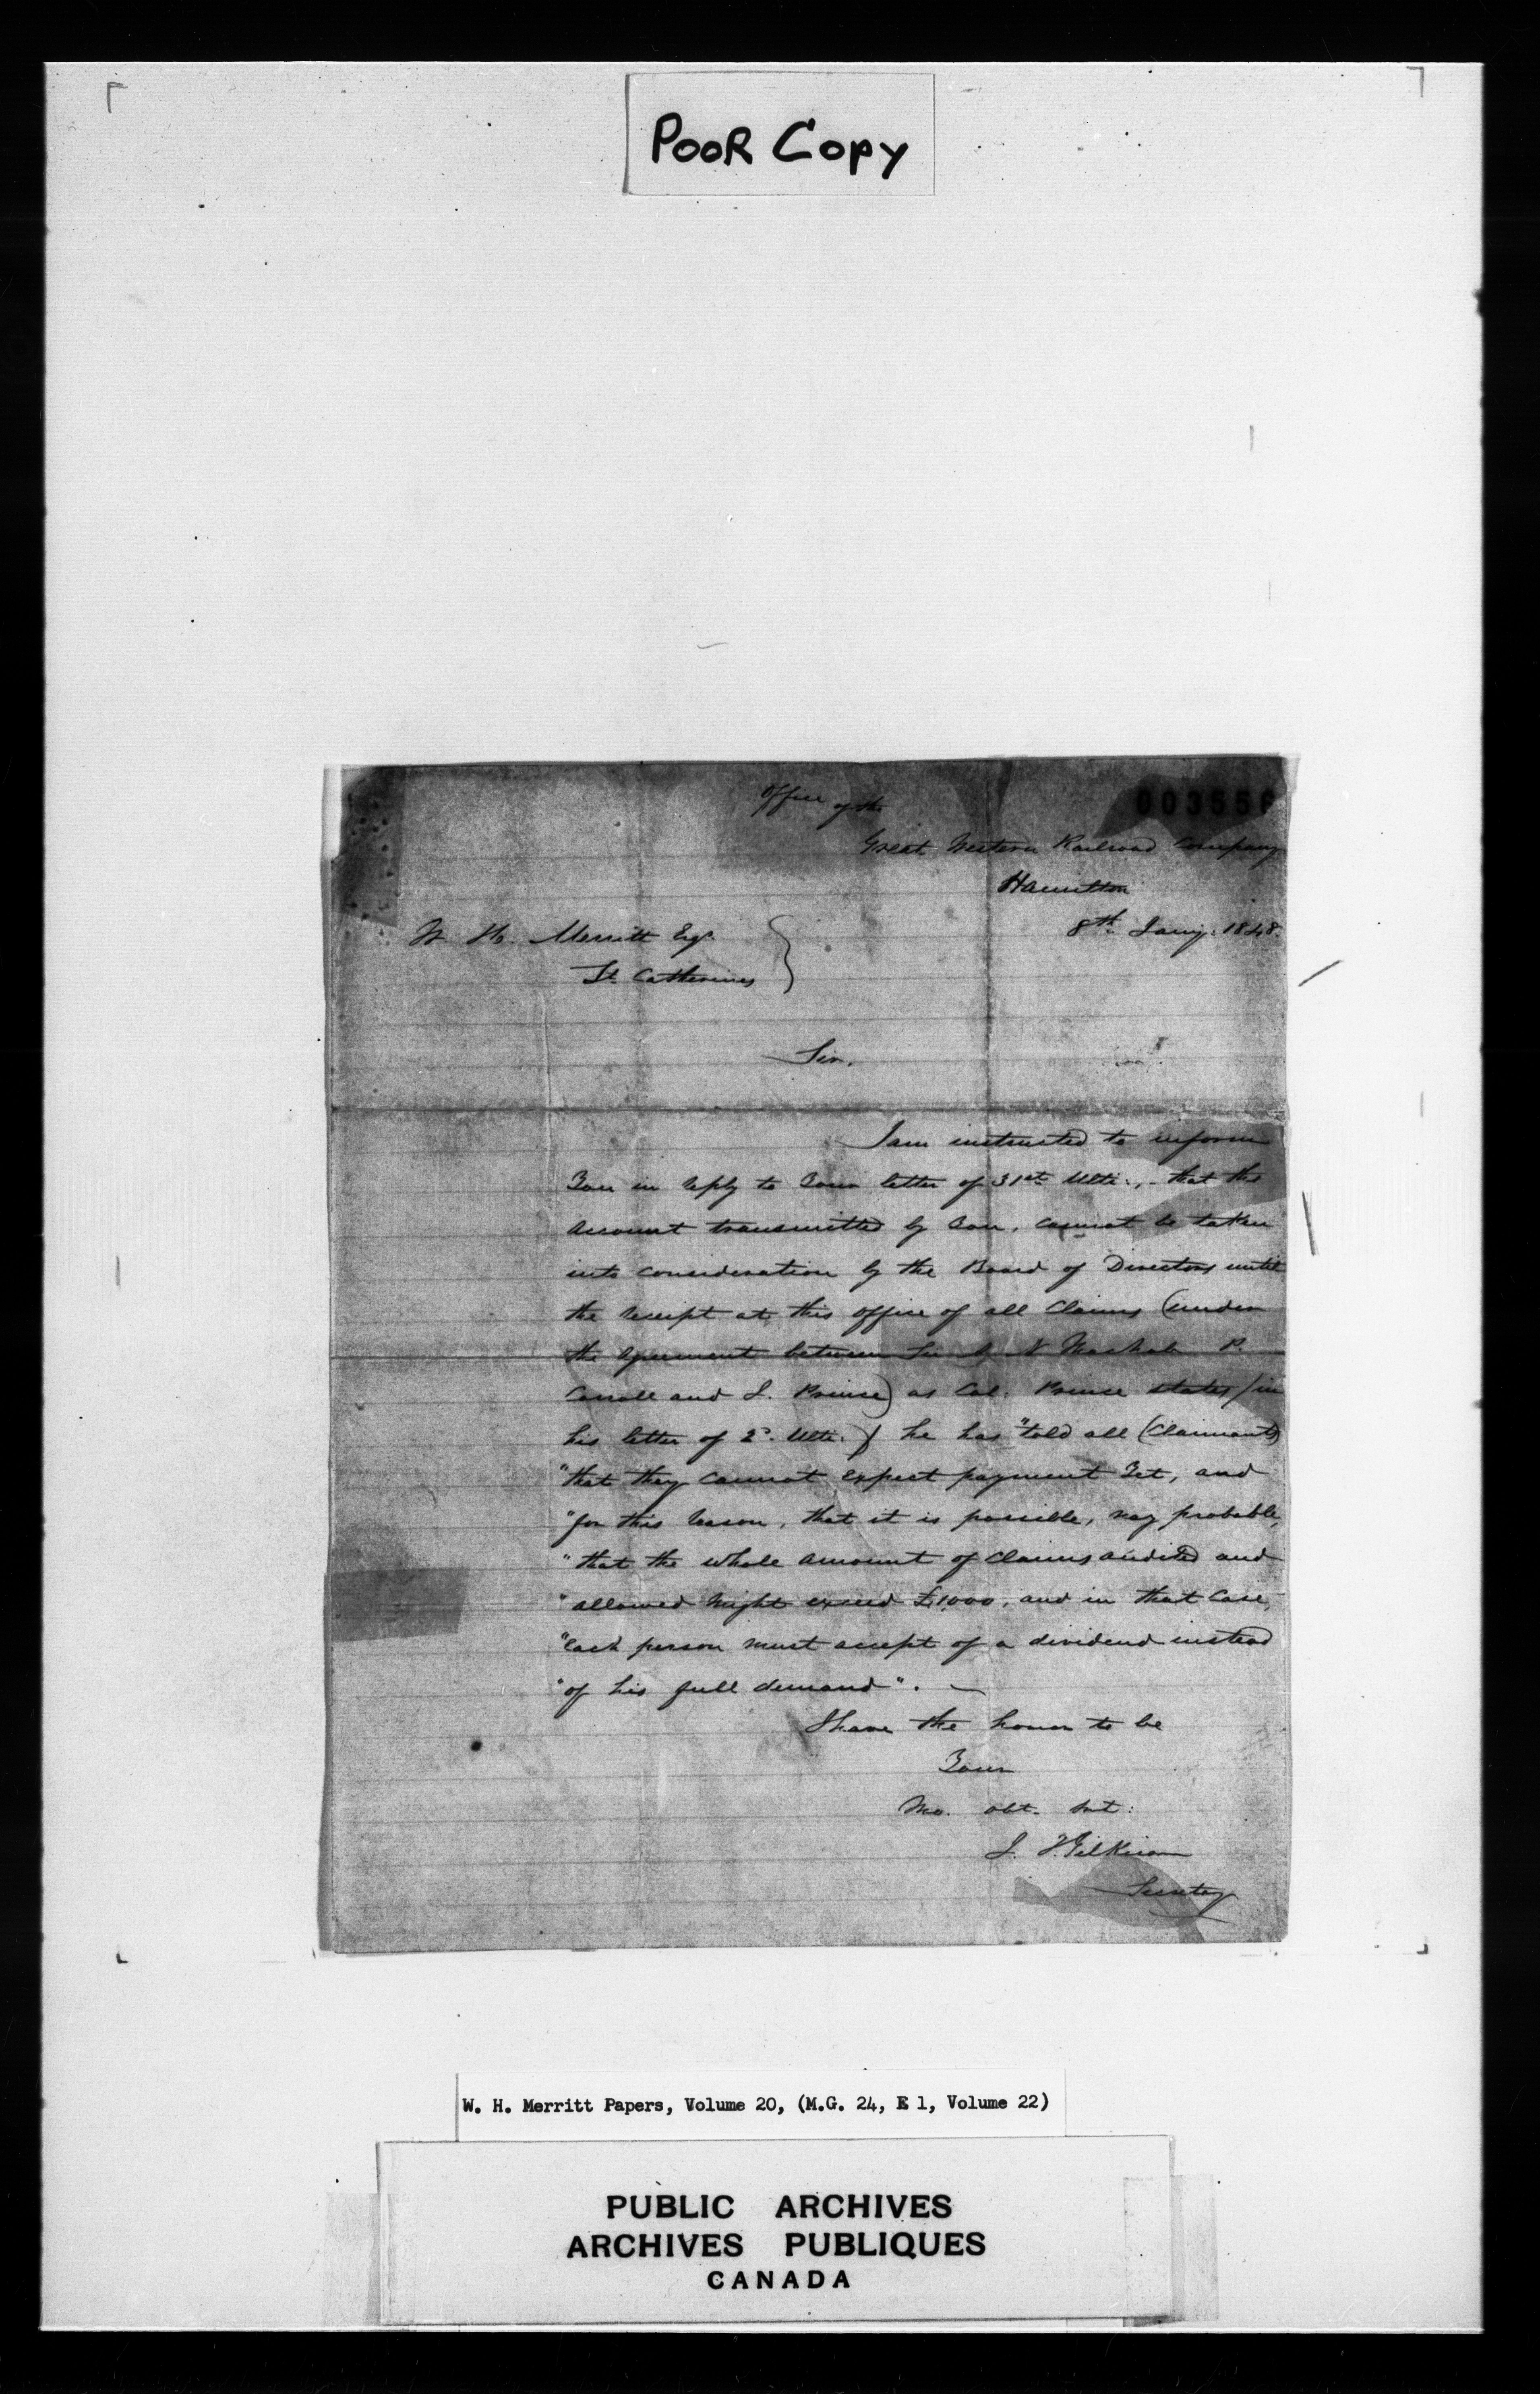 POOR COPY
Office of the
Great Western Railroad Company
Hamilton
8th Jany. 1848.
W. H. Merritt Esqr.
St. Catherines
Sir,
I am instructed to inform
You in reply to Your letter of 31st Ulto., that the
Account transmitted by You, cannot be taken
into consideration by the Board of Directors until
the receipt at this office of all Claims (under
the Agreement between Sir A. N. MacNab P.
Carroll and J. Prince) as Col. Prince states (in
his letter of 2d. Ulto.) he has "told all (Claimants)
"that they cannot expect payment Yet, and
"for this reason, that it is possible, nay probable,
"that the whole amount of Claims audited and
"allowed might exceed £1,000, and in that Case,
"each person must accept of a dividend instead
"of his full demand". —
I have the honor to be
Your
Mo. obt. Svt:
J. T. Gilkison
Secretary
W. H. Merritt Papers, Volume 20, (M.G. 24, E 1, Volume 22)
PUBLIC ARCHIVES
ARCHIVES PUBLIQUES
CANADA